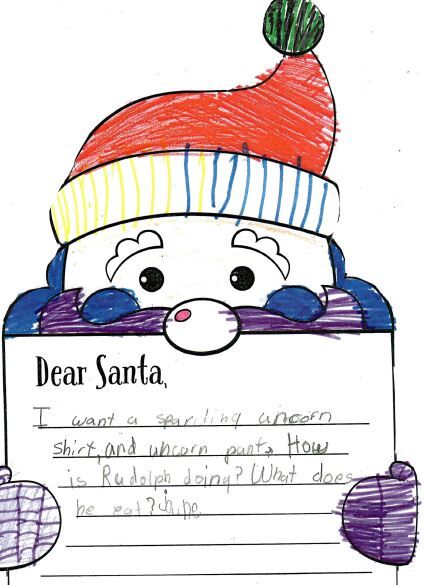 Dear Santa,
I want a spariling uncorn
shirt, and uncorn pants. How
is Rudolph doing? What does
he eat?